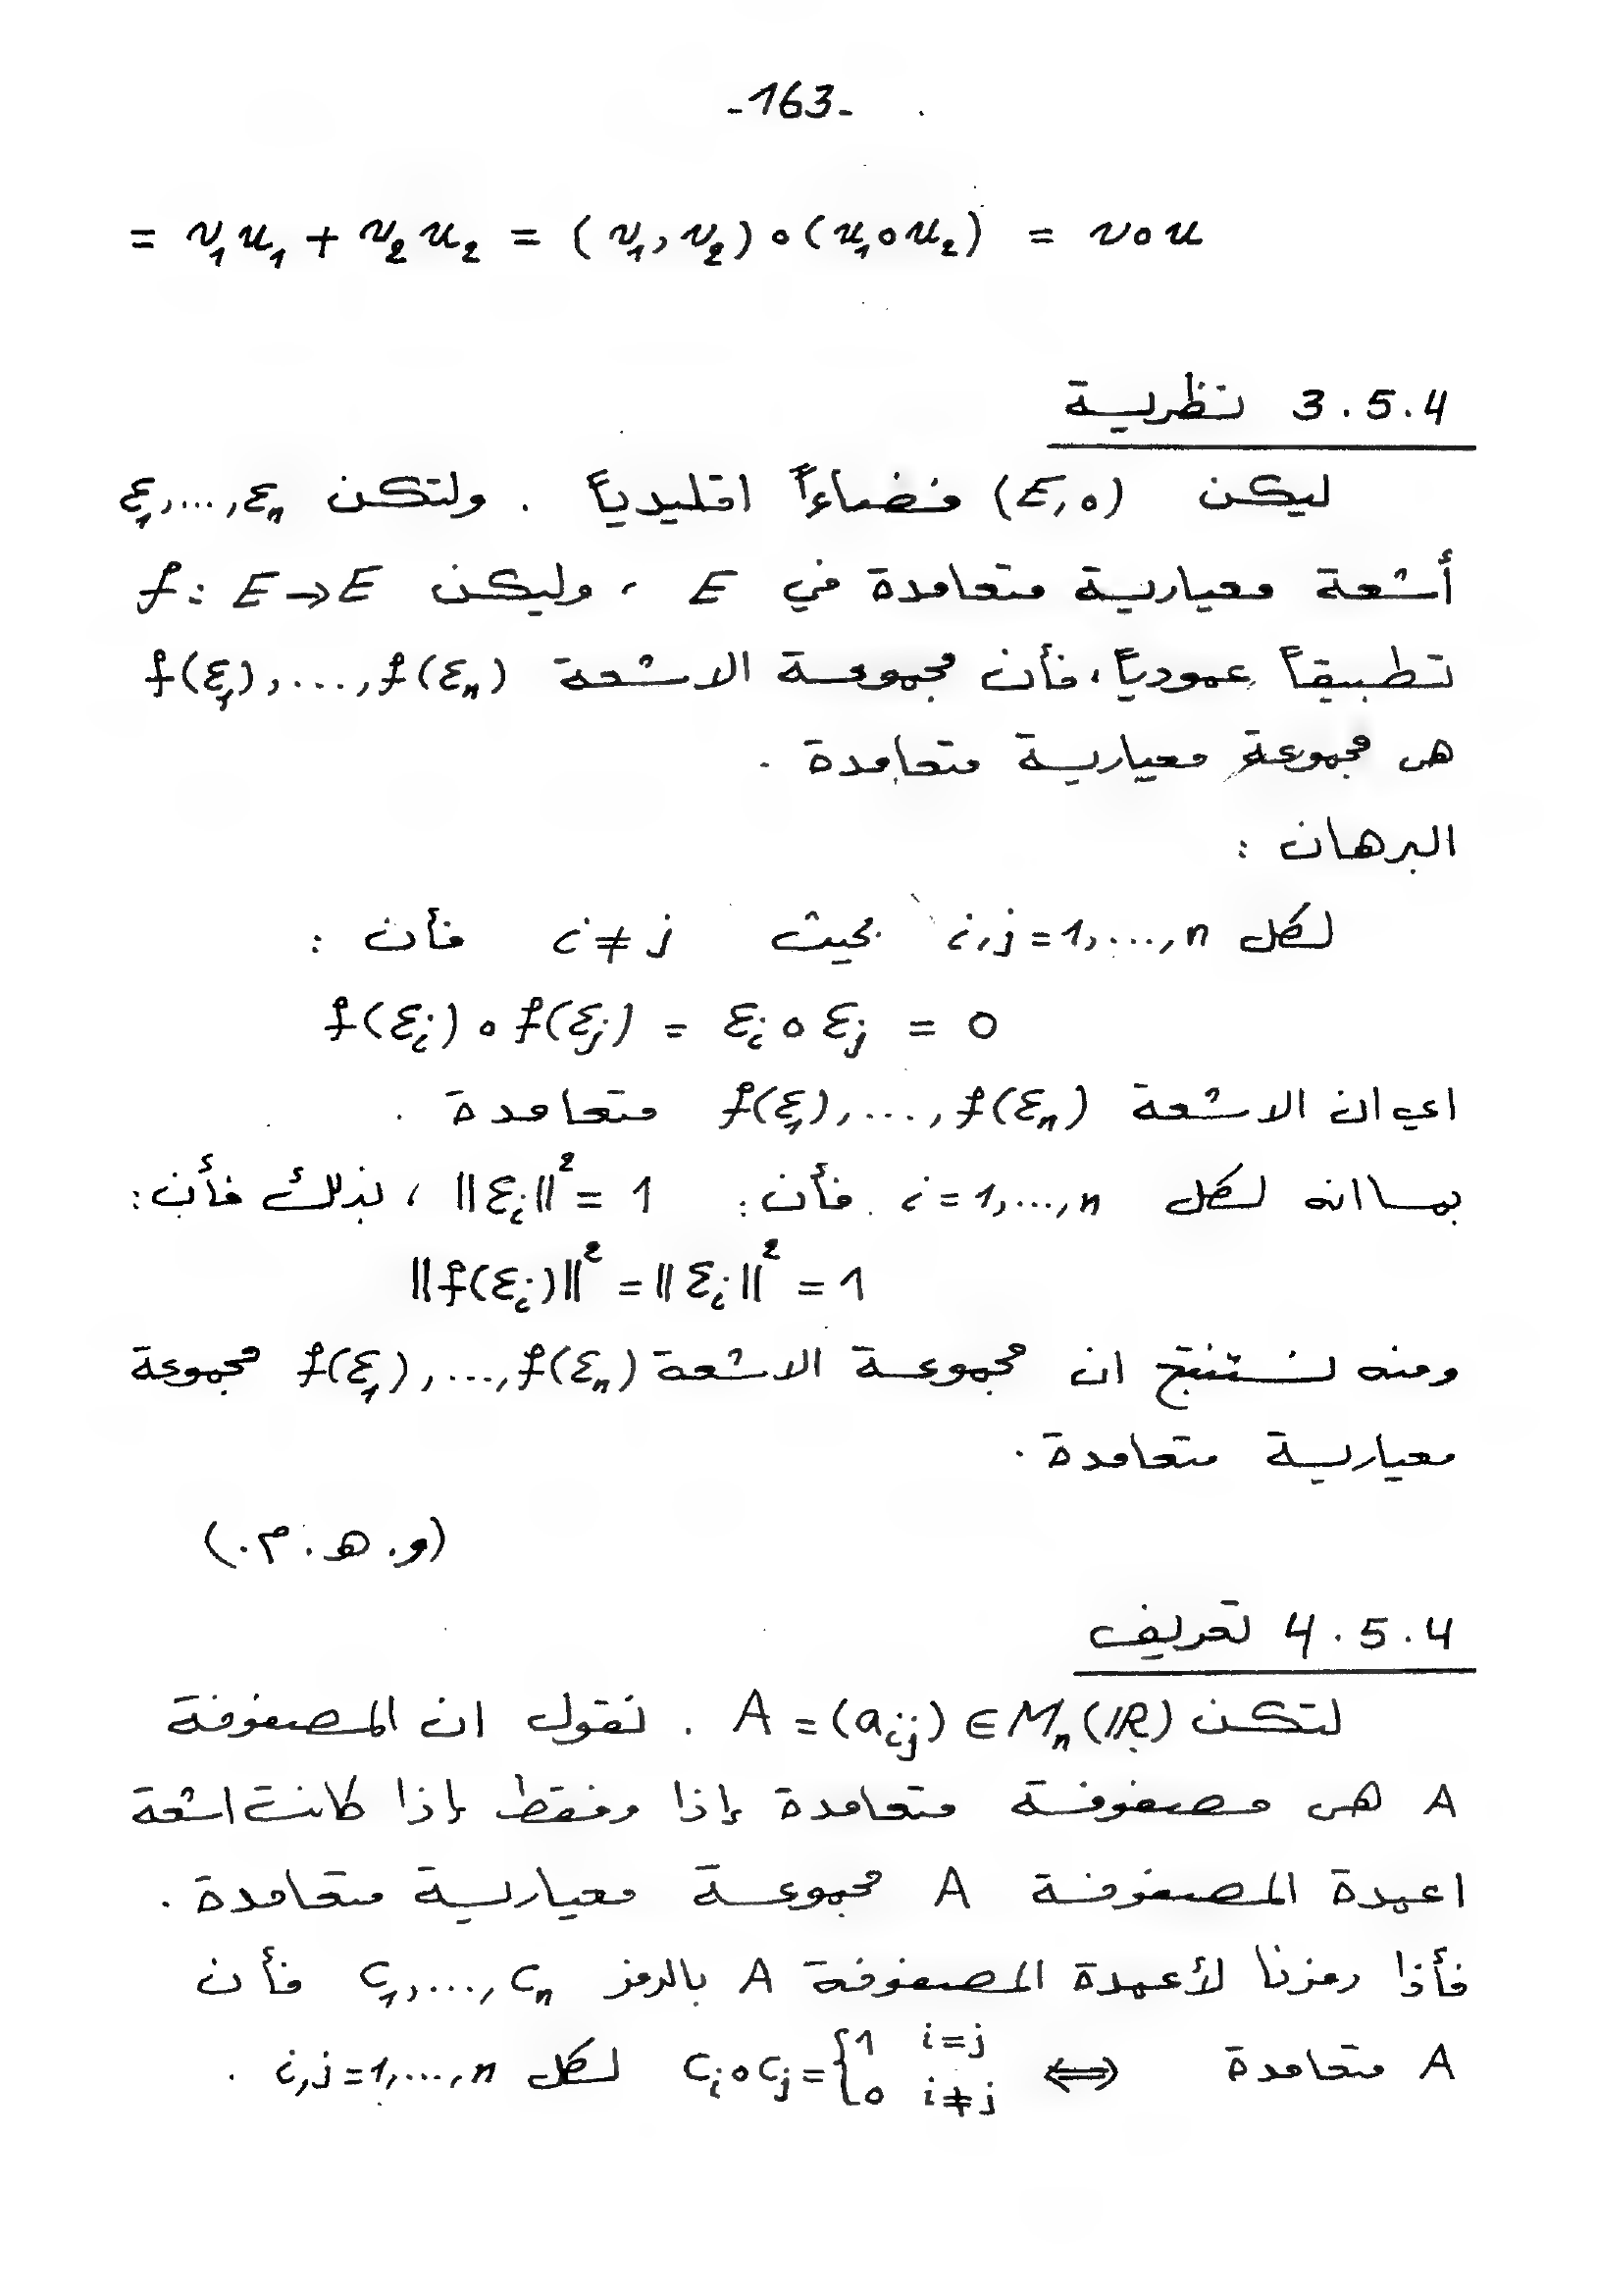 -163-
= v₁u₁ + v₂u₂ = (v₁, v₂) ∘ (u₁∘u₂) = v∘u
3.5.4 نظرية
ليكن (E,∘) فضاءاً اقليدياً . ولتكن ε₁,...,εₙ
أشعة معيارية متعامدة في E ، وليكن f: E→E
تطبيقاً عمودياً، فأن مجموعة الاشعة f(ε₁),...,f(εₙ)
هي مجموعة معيارية متعامدة .
البرهان :
لكل i,j=1,...,n بحيث i≠j فأن :
f(εᵢ)∘f(εⱼ) = εᵢ∘εⱼ = 0
اي ان الاشعة f(ε₁),...,f(εₙ) متعامدة .
بما انه لكل i=1,...,n فأن: ‖εᵢ‖² = 1 ، بذلك فأن:
‖f(εᵢ)‖² = ‖εᵢ‖² = 1
ومنه نستنتج ان مجموعة الاشعة f(ε₁),...,f(εₙ) مجموعة
معيارية متعامدة .
(و.هـ.م.)
4.5.4 تعريف
لتكن A = (aᵢⱼ) ∈ Mₙ(ℝ) . نقول ان المصفوفة
A هي مصفوفة متعامدة إذا وفقط إذا كانت اشعة
اعمدة المصفوفة A مجموعة معيارية متعامدة .
فأذا رمزنا لأعمدة المصفوفة A بالرمز C₁,...,Cₙ فأن
A متعامدة ⟺ Cᵢ∘Cⱼ = {1 i=j ; 0 i≠j لكل i,j=1,...,n .